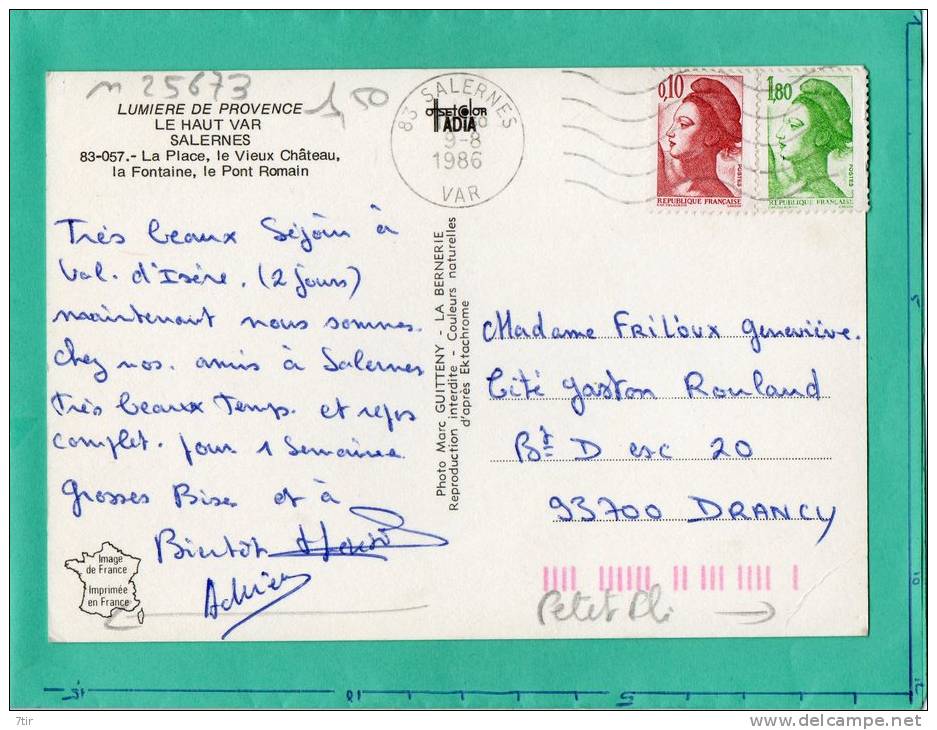 n 25673
1,50
LUMIERE DE PROVENCE
LE HAUT VAR
SALERNES
83-057.- La Place, le Vieux Château,
la Fontaine, le Pont Romain
83 SALERNES
9-8
1986
VAR
OffsetColor
ADIA
0,10
POSTES
REPUBLIQUE FRANÇAISE
1,80
POSTES
REPUBLIQUE FRANÇAISE
Très beaux Séjour à
Val. d'Isère. (2 jours)
maintenant nous sommes.
chez nos. amis à Salernes
Très beaux Temps. et repos
complet. pour 1 Semaine
Grosses Bises et à
Bientôt
Adrien
Photo Marc GUITTENY - LA BERNERIE
Reproduction interdite - Couleurs naturelles
d'après Ektachrome
Madame FRILOUX Geneviève.
Cité Gaston Rouland
Bt D esc 20
93700 DRANCY
Image
de France
Imprimée
en France
Petit Pli
15
10
5
5
10
7tir
www.delcampe.net